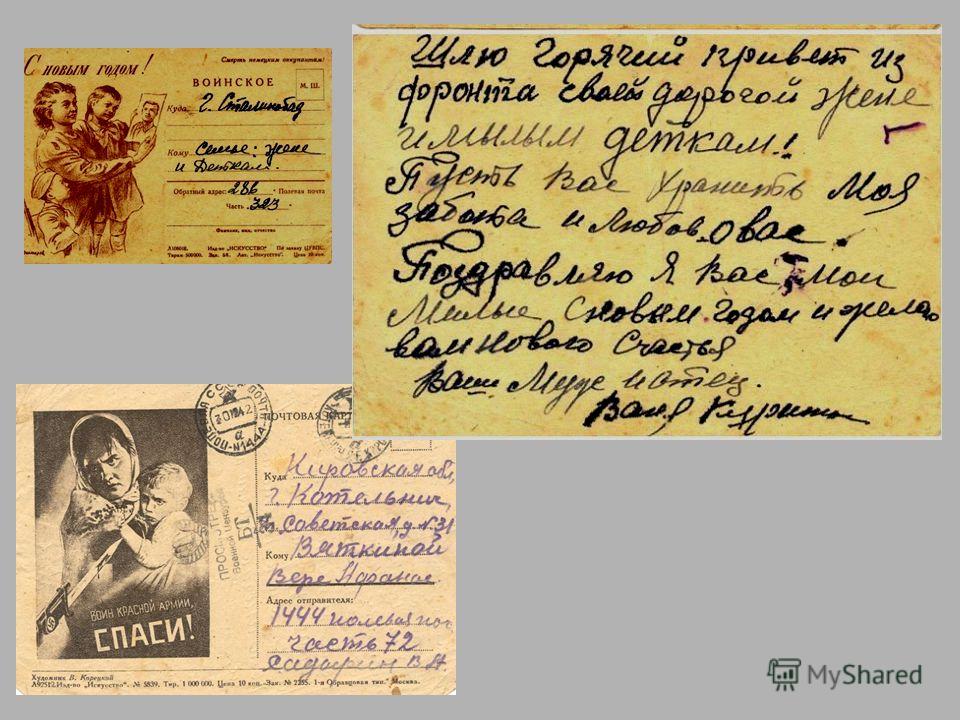 С НОВЫМ ГОДОМ!
Смерть немецким оккупантам!
ВОИНСКОЕ
М. Ш.
Куда г. Сталинабад
Кому Семье: жене
и Деткам.
Обратный адрес: 286 Полевая почта
Часть 323
Фамилия, имя, отчество
Изд-во „ИСКУССТВО" По заказу ЦУВПС.
Тираж 500000. Зак. 68. Цена 10 коп.
Шлю горячий привет из
фронта своей дорогой жене
и милым деткам!
Пусть Вас хранить Моя
забота и любов. о вас.
Поздравляю я Вас Мои
Милые с новым годом и желаю
вам нового Счастья
Ваш Муж и отец.
Ваня
ПОЧТОВАЯ КАРТ
Куда Кировская обл,
г. Котельнич,
Советская, д. №31
Кому Вяткиной
Вере
Адрес отправителя:
1444 полевая поч
часть 72
В
ВОИН КРАСНОЙ АРМИИ,
СПАСИ!
ПРОСМОТРЕНО
Военной Цензурой
Художник В. Корецкий
А92512. Изд-во „Искусство". № 5839. Тир. 1 000 000. Цена 10 коп. Зак. № 2255. 1-я Образцовая тип. Москва.
MyShared